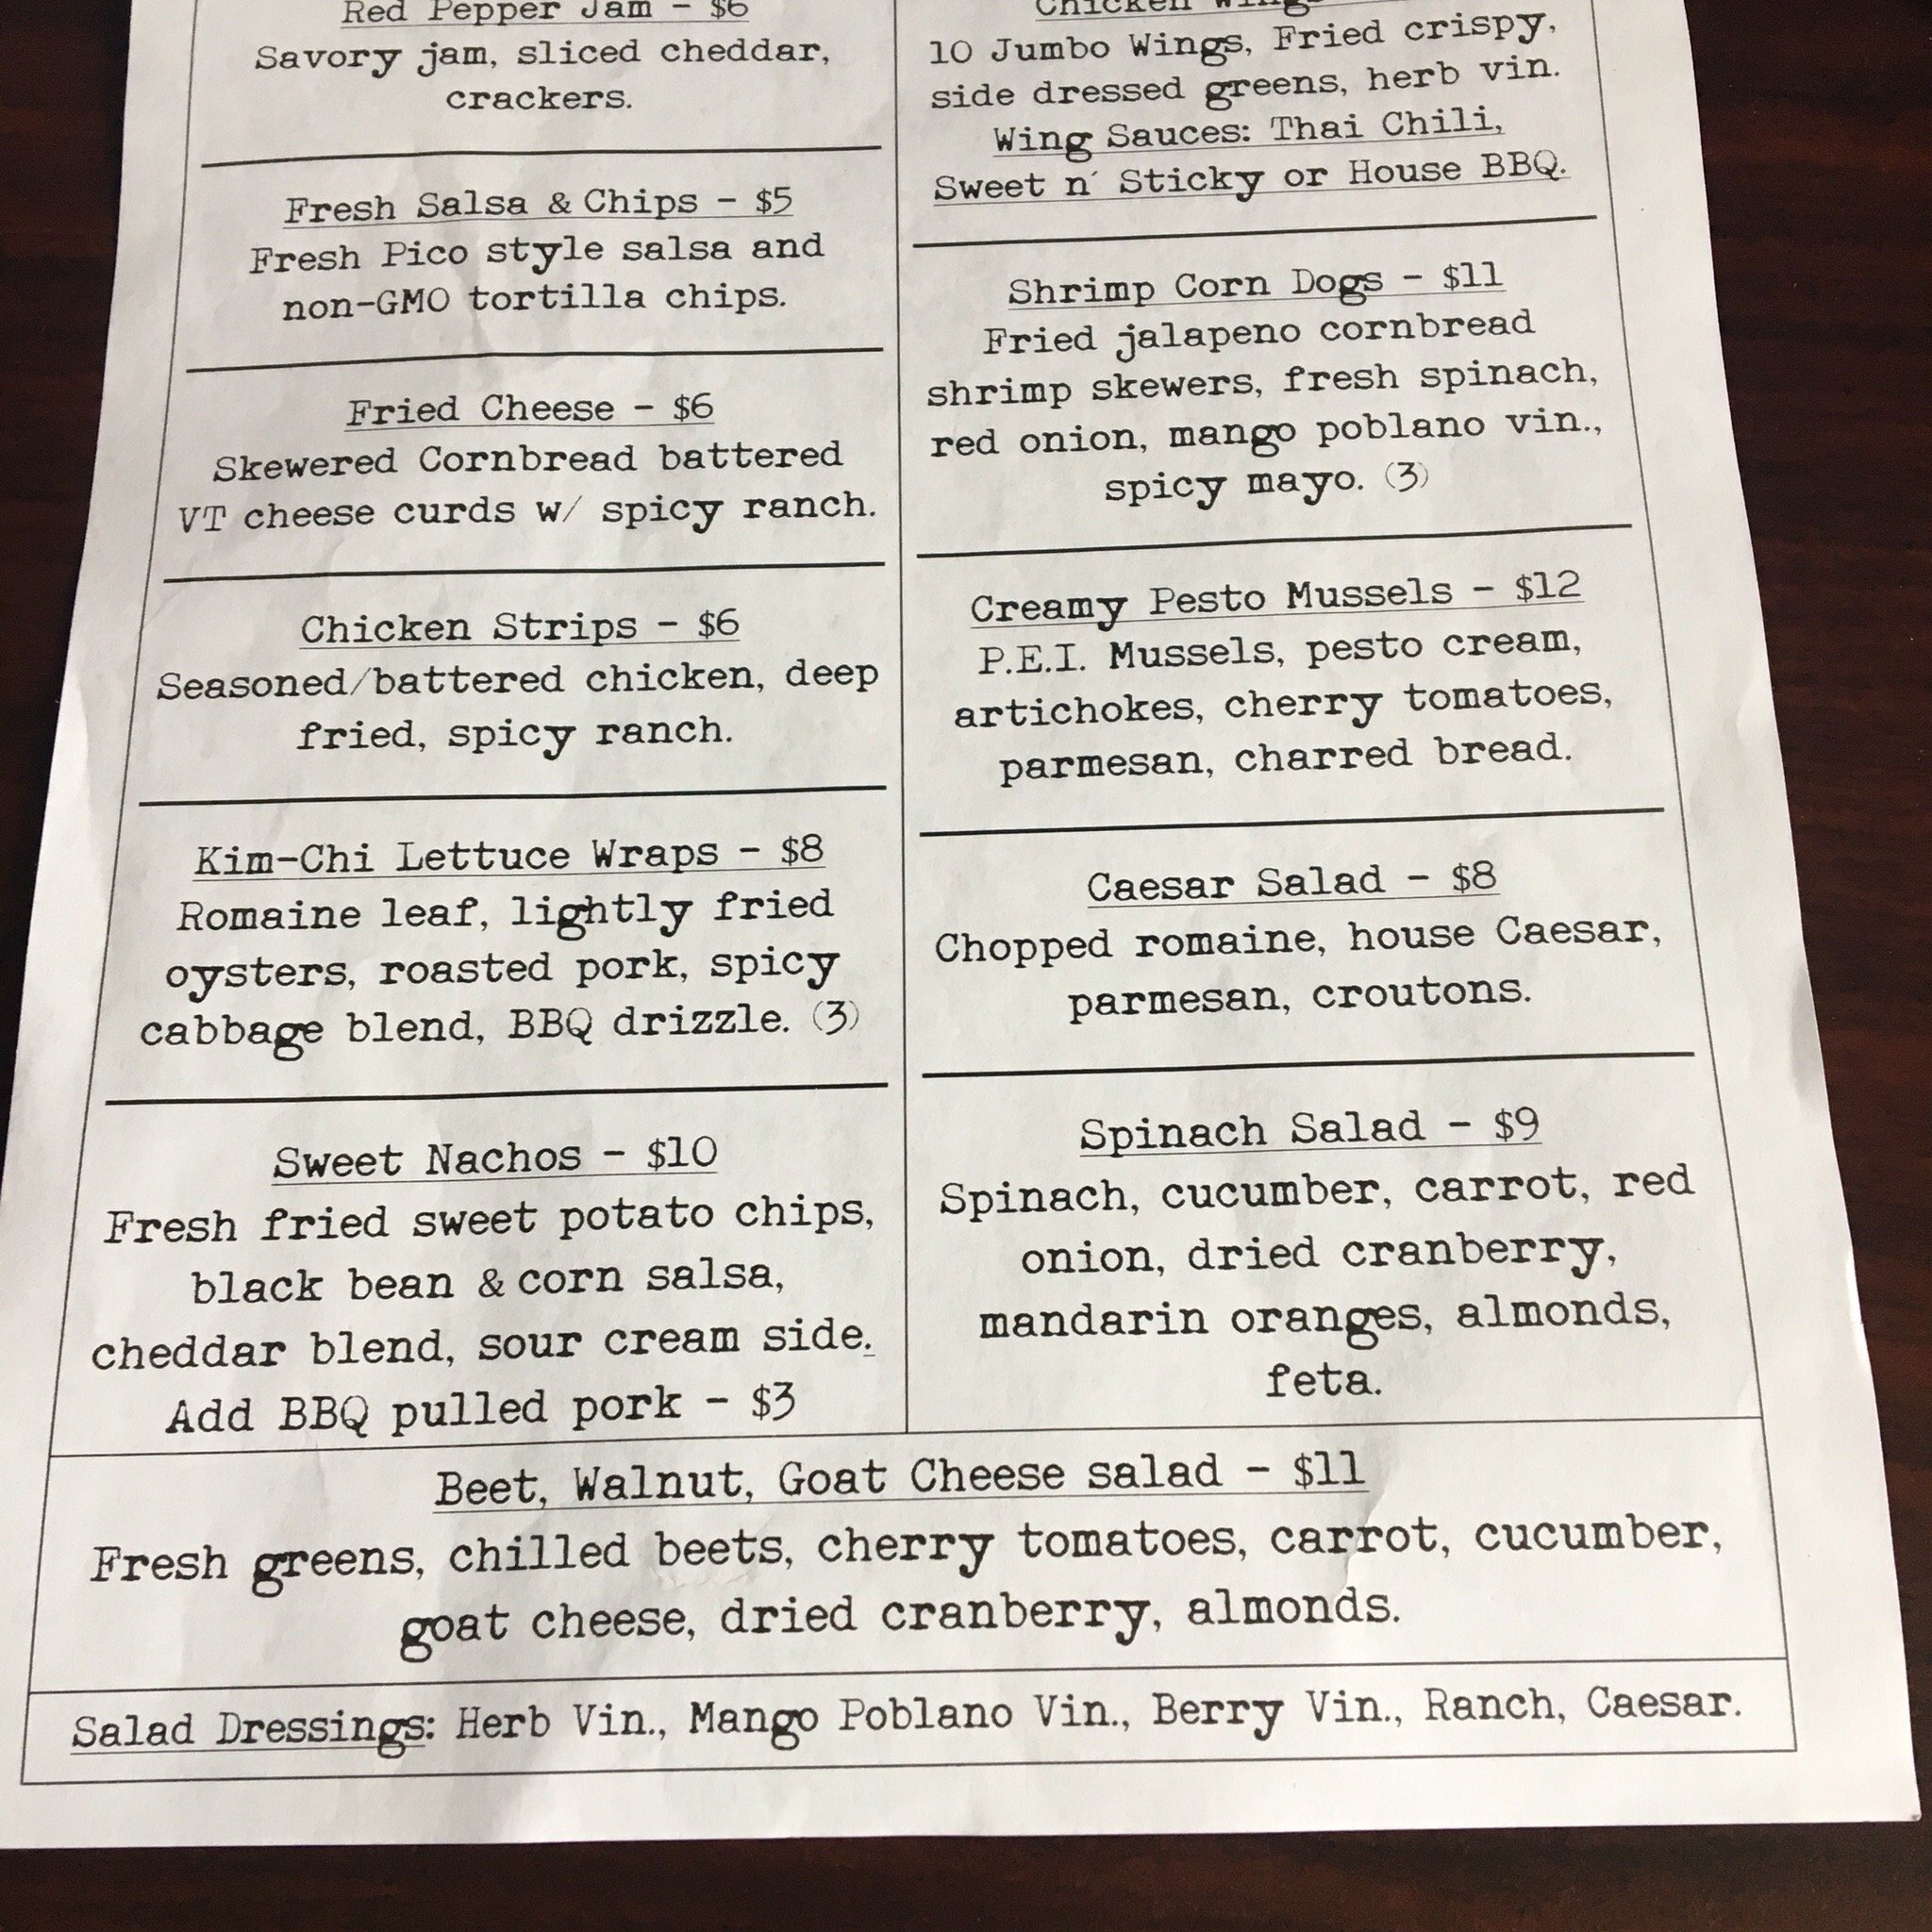 Red Pepper Jam - $6
Savory jam, sliced cheddar,
crackers.
Fresh Salsa & Chips - $5
Fresh Pico style salsa and
non-GMO tortilla chips.
Fried Cheese - $6
Skewered Cornbread battered
VT cheese curds w/ spicy ranch.
Chicken Strips - $6
Seasoned/battered chicken, deep
fried, spicy ranch.
Kim-Chi Lettuce Wraps - $8
Romaine leaf, lightly fried
oysters, roasted pork, spicy
cabbage blend, BBQ drizzle. (3)
Sweet Nachos - $10
Fresh fried sweet potato chips,
black bean & corn salsa,
cheddar blend, sour cream side.
Add BBQ pulled pork - $3
Chicken Wings
10 Jumbo Wings, Fried crispy,
side dressed greens, herb vin.
Wing Sauces: Thai Chili,
Sweet n´ Sticky or House BBQ.
Shrimp Corn Dogs - $11
Fried jalapeno cornbread
shrimp skewers, fresh spinach,
red onion, mango poblano vin.,
spicy mayo. (3)
Creamy Pesto Mussels - $12
P.E.I. Mussels, pesto cream,
artichokes, cherry tomatoes,
parmesan, charred bread.
Caesar Salad - $8
Chopped romaine, house Caesar,
parmesan, croutons.
Spinach Salad - $9
Spinach, cucumber, carrot, red
onion, dried cranberry,
mandarin oranges, almonds,
feta.
Beet, Walnut, Goat Cheese salad - $11
Fresh greens, chilled beets, cherry tomatoes, carrot, cucumber,
goat cheese, dried cranberry, almonds.
Salad Dressings: Herb Vin., Mango Poblano Vin., Berry Vin., Ranch, Caesar.